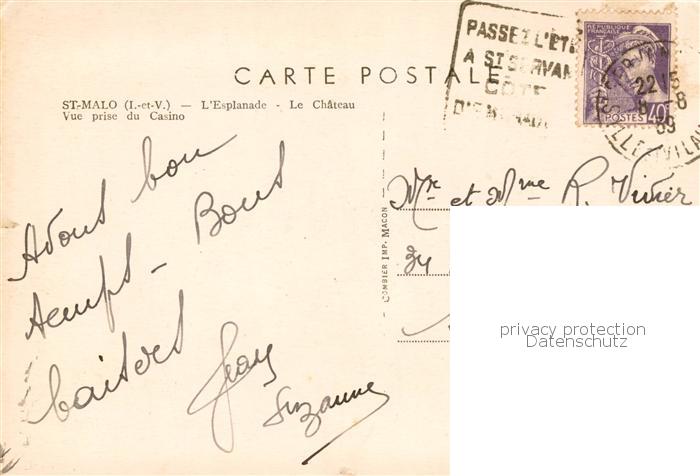 PASSEZ L'ÉTÉ
A ST SERVAN
CÔTE
D'EMERAUDE
RÉPUBLIQUE FRANÇAISE
POSTES 40
22 15
8 - 8
39
CARTE POSTALE
ST-MALO (I.-et-V.) — L'Esplanade - Le Château
Vue prise du Casino
Avons bon
temps - Bons
baisers
Jean
Suzanne
COMBIER IMP. MACON
Mr et Mme R. Vivier
34
privacy protection
Datenschutz